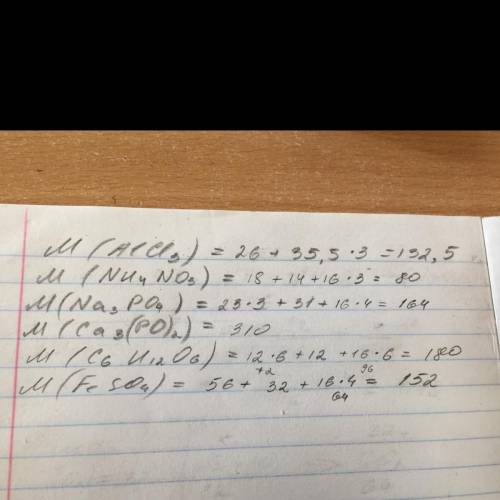 M(AlCl3) = 26 + 35,5 · 3 = 132,5
M(NH4NO3) = 18 + 14 + 16 · 3 = 80
M(Na3PO4) = 23 · 3 + 31 + 16 · 4 = 164
M(Ca3(PO)2) = 310
M(C6H12O6) = 12 · 6 + 12 + 16 · 6 = 180
72 96
M(FeSO4) = 56 + 32 + 16 · 4 = 152
64